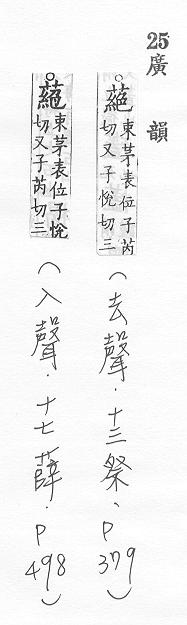 25廣韻
蕝 東茅表位子芮切又子悅切三
(去聲．十三祭、P379)
蕝 東茅表位子悅切又子芮切三
(入聲．十七薛．P498)